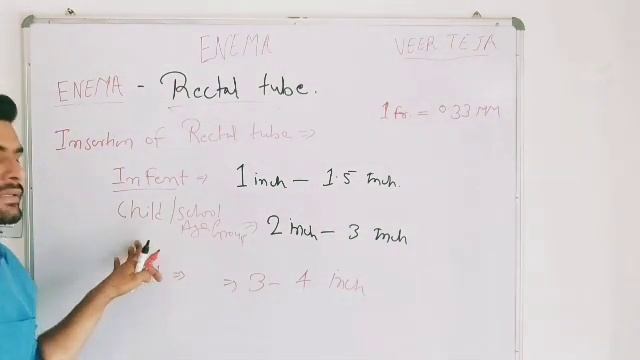 ENEMA
VEER TEJA
ENEMA - Rectal tube.
1 fr. = 0.33 MM
Insertion of Rectal tube ⇒
Infent ⇒ 1 inch - 1.5 Inch.
Child/School
Age Group ⇒ 2 inch - 3 Inch
⇒ ⇒ 3 - 4 inch